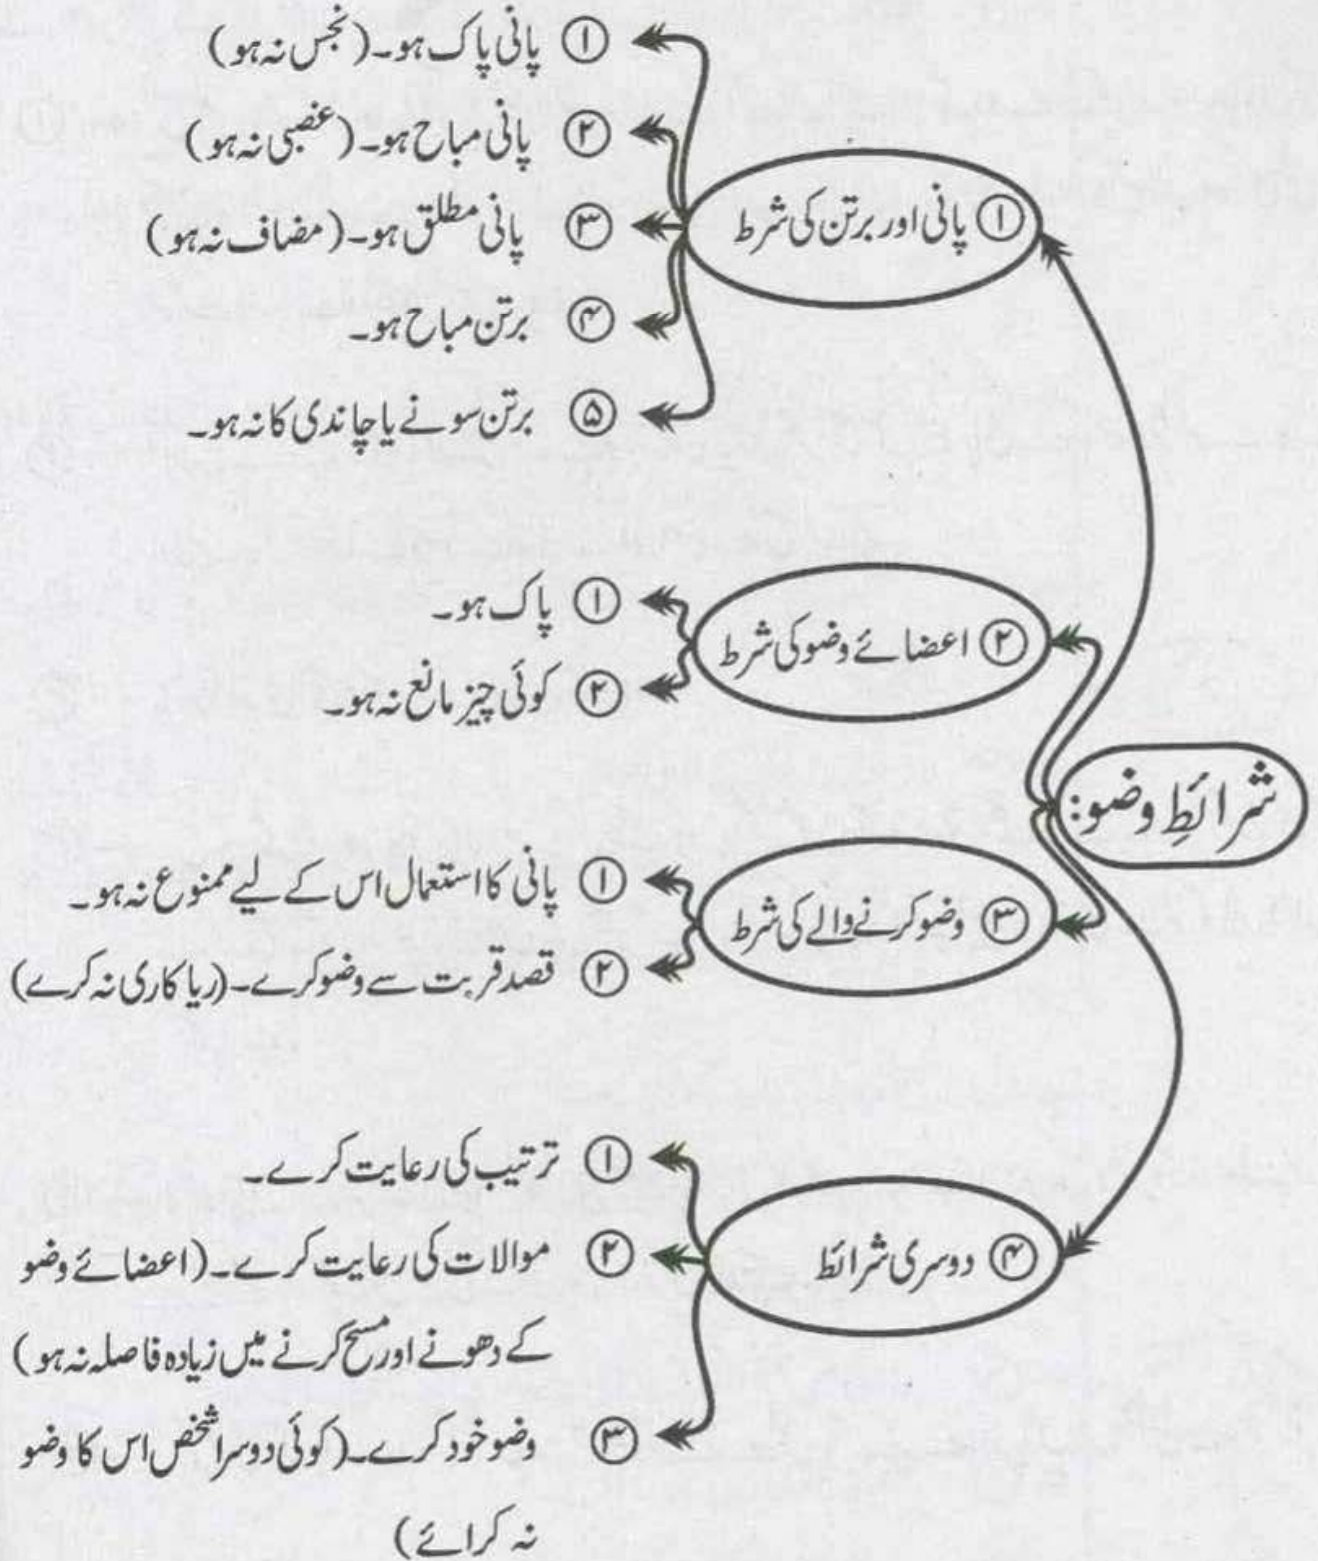 شرائطِ وضو:
① پانی اور برتن کی شرط
① پانی پاک ہو۔ (نجس نہ ہو)
② پانی مباح ہو۔ (غصبی نہ ہو)
③ پانی مطلق ہو۔ (مضاف نہ ہو)
④ برتن مباح ہو۔
⑤ برتن سونے یا چاندی کا نہ ہو۔
② اعضائے وضو کی شرط
① پاک ہو۔
② کوئی چیز مانع نہ ہو۔
③ وضو کرنے والے کی شرط
① پانی کا استعمال اس کے لیے ممنوع نہ ہو۔
② قصد قربت سے وضو کرے۔ (ریا کاری نہ کرے)
④ دوسری شرائط
① ترتیب کی رعایت کرے۔
② موالات کی رعایت کرے۔ (اعضائے وضو
کے دھونے اور مسح کرنے میں زیادہ فاصلہ نہ ہو)
③ وضو خود کرے۔ (کوئی دوسرا شخص اس کا وضو
نہ کرائے)